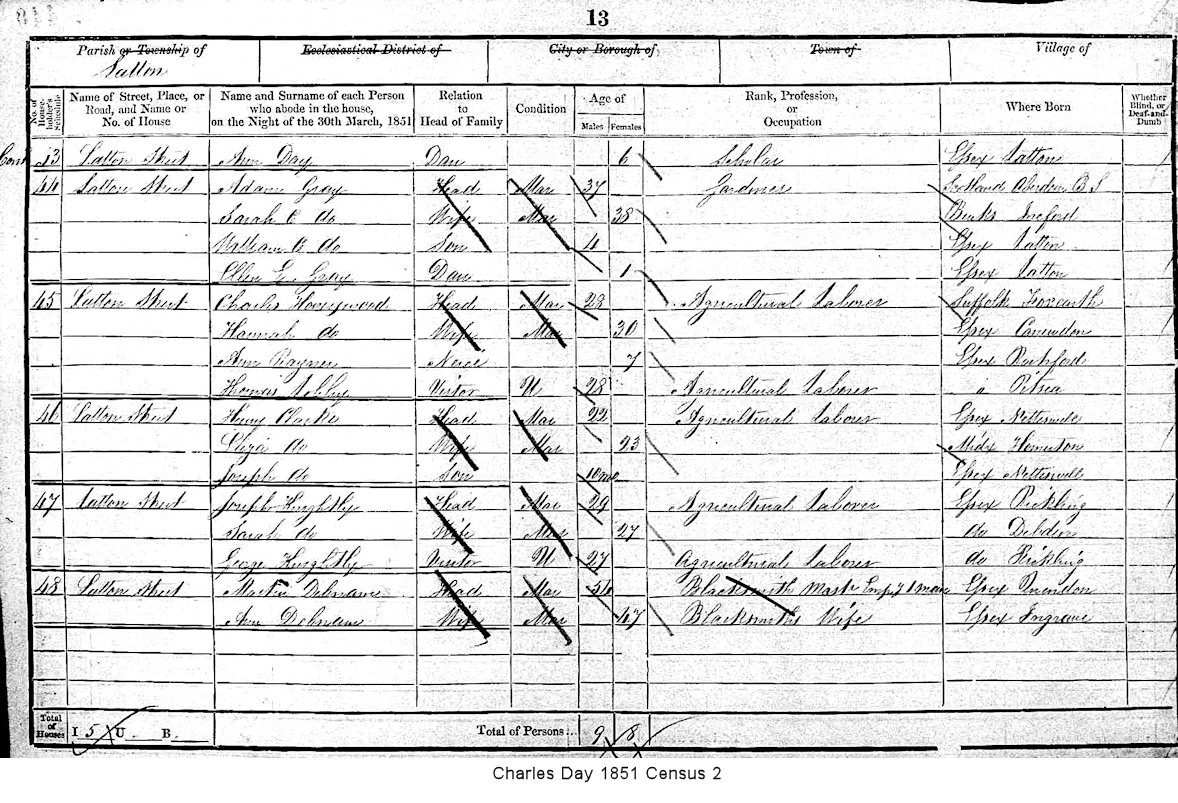 13
Parish or Township of Ecclesiastical District of City or Borough of Town of Village of
Latton
No. of House-holder's Schedule Name of Street, Place, or Road, and Name or No. of House Name and Surname of each Person who abode in the house, on the Night of the 30th March, 1851 Relation to Head of Family Condition Age of Males Females Rank, Profession, or Occupation Where Born Whether Blind, or Deaf-and-Dumb
Latton Street Ann Day Dau 6 Scholar Essex Latton
44 Latton Street Adam Gray Head Mar 37 Gardiner Scotland B.S
Sarah do Wife Mar 38 Bucks
William do Son 4 Essex Latton
Ellen E. Gray Dau 1 Essex Latton
45 Latton Street Charles Honeywood Head Mar Agricultural Laborer Suffolk Foxearth
Hannah do Wife Mar 30 Essex Canewdon
Ann Rayner Niece 7 Essex Rochford
Thomas Visitor U 28 Agricultural Laborer Pitsea
46 Latton Street Henry Head Mar 22 Agricultural Laborer Essex Netteswell
Eliza do Wife Mar 23 Midx Homerton
Joseph do Son 10mo Essex Netteswell
47 Latton Street Joseph Knightly Head Mar 29 Agricultural Laborer Essex Rickling
Sarah do Wife Mar 27 do Debden
George Knightly Visitor U 27 Agricultural Laborer do Rickling
48 Latton Street Martin Debnam Head Mar Blacksmith Mastr Empg 1 man Essex Quendon
Ann Debnam Wife Mar 47 Blacksmiths Wife Essex Ingrave
Total of Houses I 5 U B Total of Persons... 9 8
Charles Day 1851 Census 2